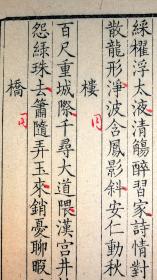 綵櫂浮太液清觴醉習家詩情對
散龍形淨波含鳳影斜安仁動秋
樓
百尺重城際千尋大道隈漢宮井
怨綠珠去簫隨弄玉來銷憂聊暇
橋